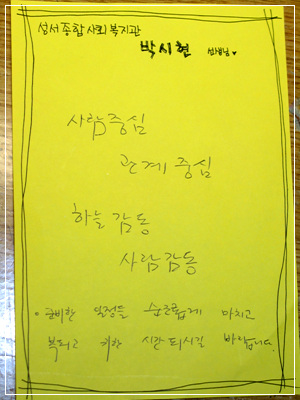 성서종합사회복지관
박시현 선생님♥
사람중심
관계중심
하늘감동
사람감동
• 준비한 일정들 순조롭게 마치고
복되고 귀한 시간 되시길 바랍니다.